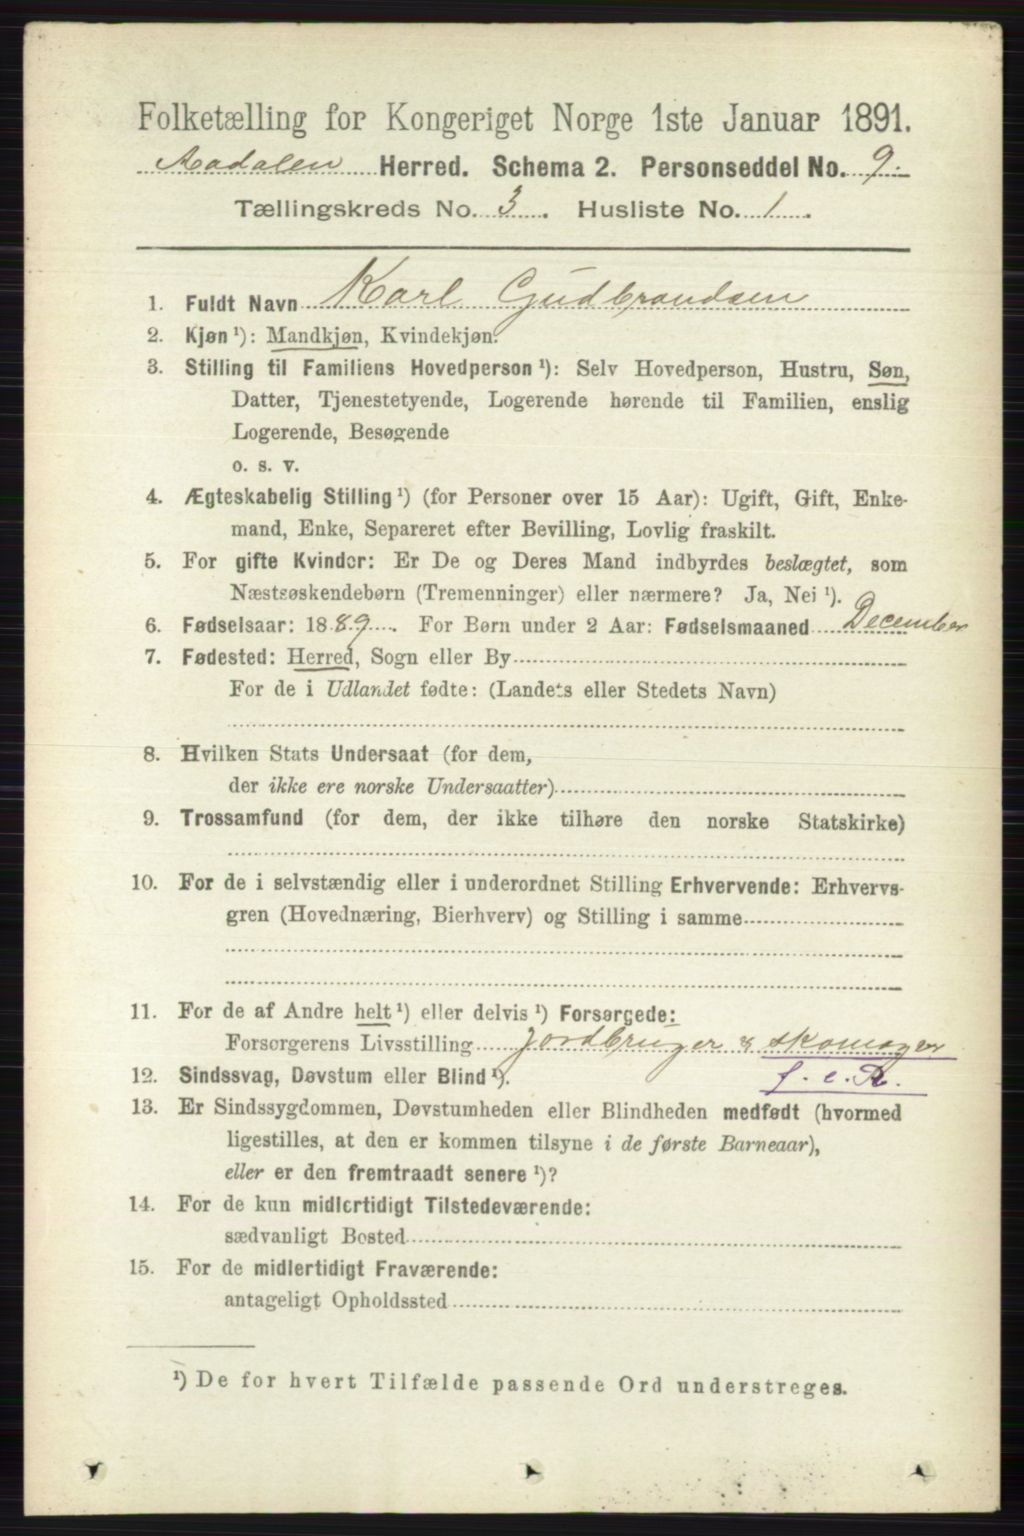 Folketælling for Kongeriget Norge 1ste Januar 1891.
Aadalen Herred. Schema 2. Personseddel No. 9.
Tællingskreds No. 3. Husliste No. 1.
1. Fuldt Navn Karl Gudbrandsen
2. Kjøn ¹): Mandkjøn, Kvindekjøn.
3. Stilling til Familiens Hovedperson ¹): Selv Hovedperson, Hustru, Søn,
Datter, Tjenestetyende, Logerende hørende til Familien, enslig
Logerende, Besøgende
o. s. v.
4. Ægteskabelig Stilling ¹) (for Personer over 15 Aar): Ugift, Gift, Enke-
mand, Enke, Separeret efter Bevilling, Lovlig fraskilt.
5. For gifte Kvinder: Er De og Deres Mand indbyrdes beslægtet, som
Næstsøskendebørn (Tremenninger) eller nærmere? Ja, Nei ¹).
6. Fødselsaar: 1889. For Børn under 2 Aar: Fødselsmaaned December
7. Fødested: Herred, Sogn eller By
For de i Udlandet fødte: (Landets eller Stedets Navn)
8. Hvilken Stats Undersaat (for dem,
der ikke ere norske Undersaatter)
9. Trossamfund (for dem, der ikke tilhøre den norske Statskirke)
10. For de i selvstændig eller i underordnet Stilling Erhvervende: Erhvervs-
gren (Hovednæring, Bierhverv) og Stilling i samme
11. For de af Andre helt ¹) eller delvis ¹) Forsørgede:
Forsørgerens Livsstilling Jordbruger & skomager
12. Sindssvag, Døvstum eller Blind ¹). f. e. R.
13. Er Sindssygdommen, Døvstumheden eller Blindheden medfødt (hvormed
ligestilles, at den er kommen tilsyne i de første Barneaar),
eller er den fremtraadt senere ¹)?
14. For de kun midlertidigt Tilstedeværende:
sædvanligt Bosted
15. For de midlertidigt Fraværende:
antageligt Opholdssted
¹) De for hvert Tilfælde passende Ord understreges.